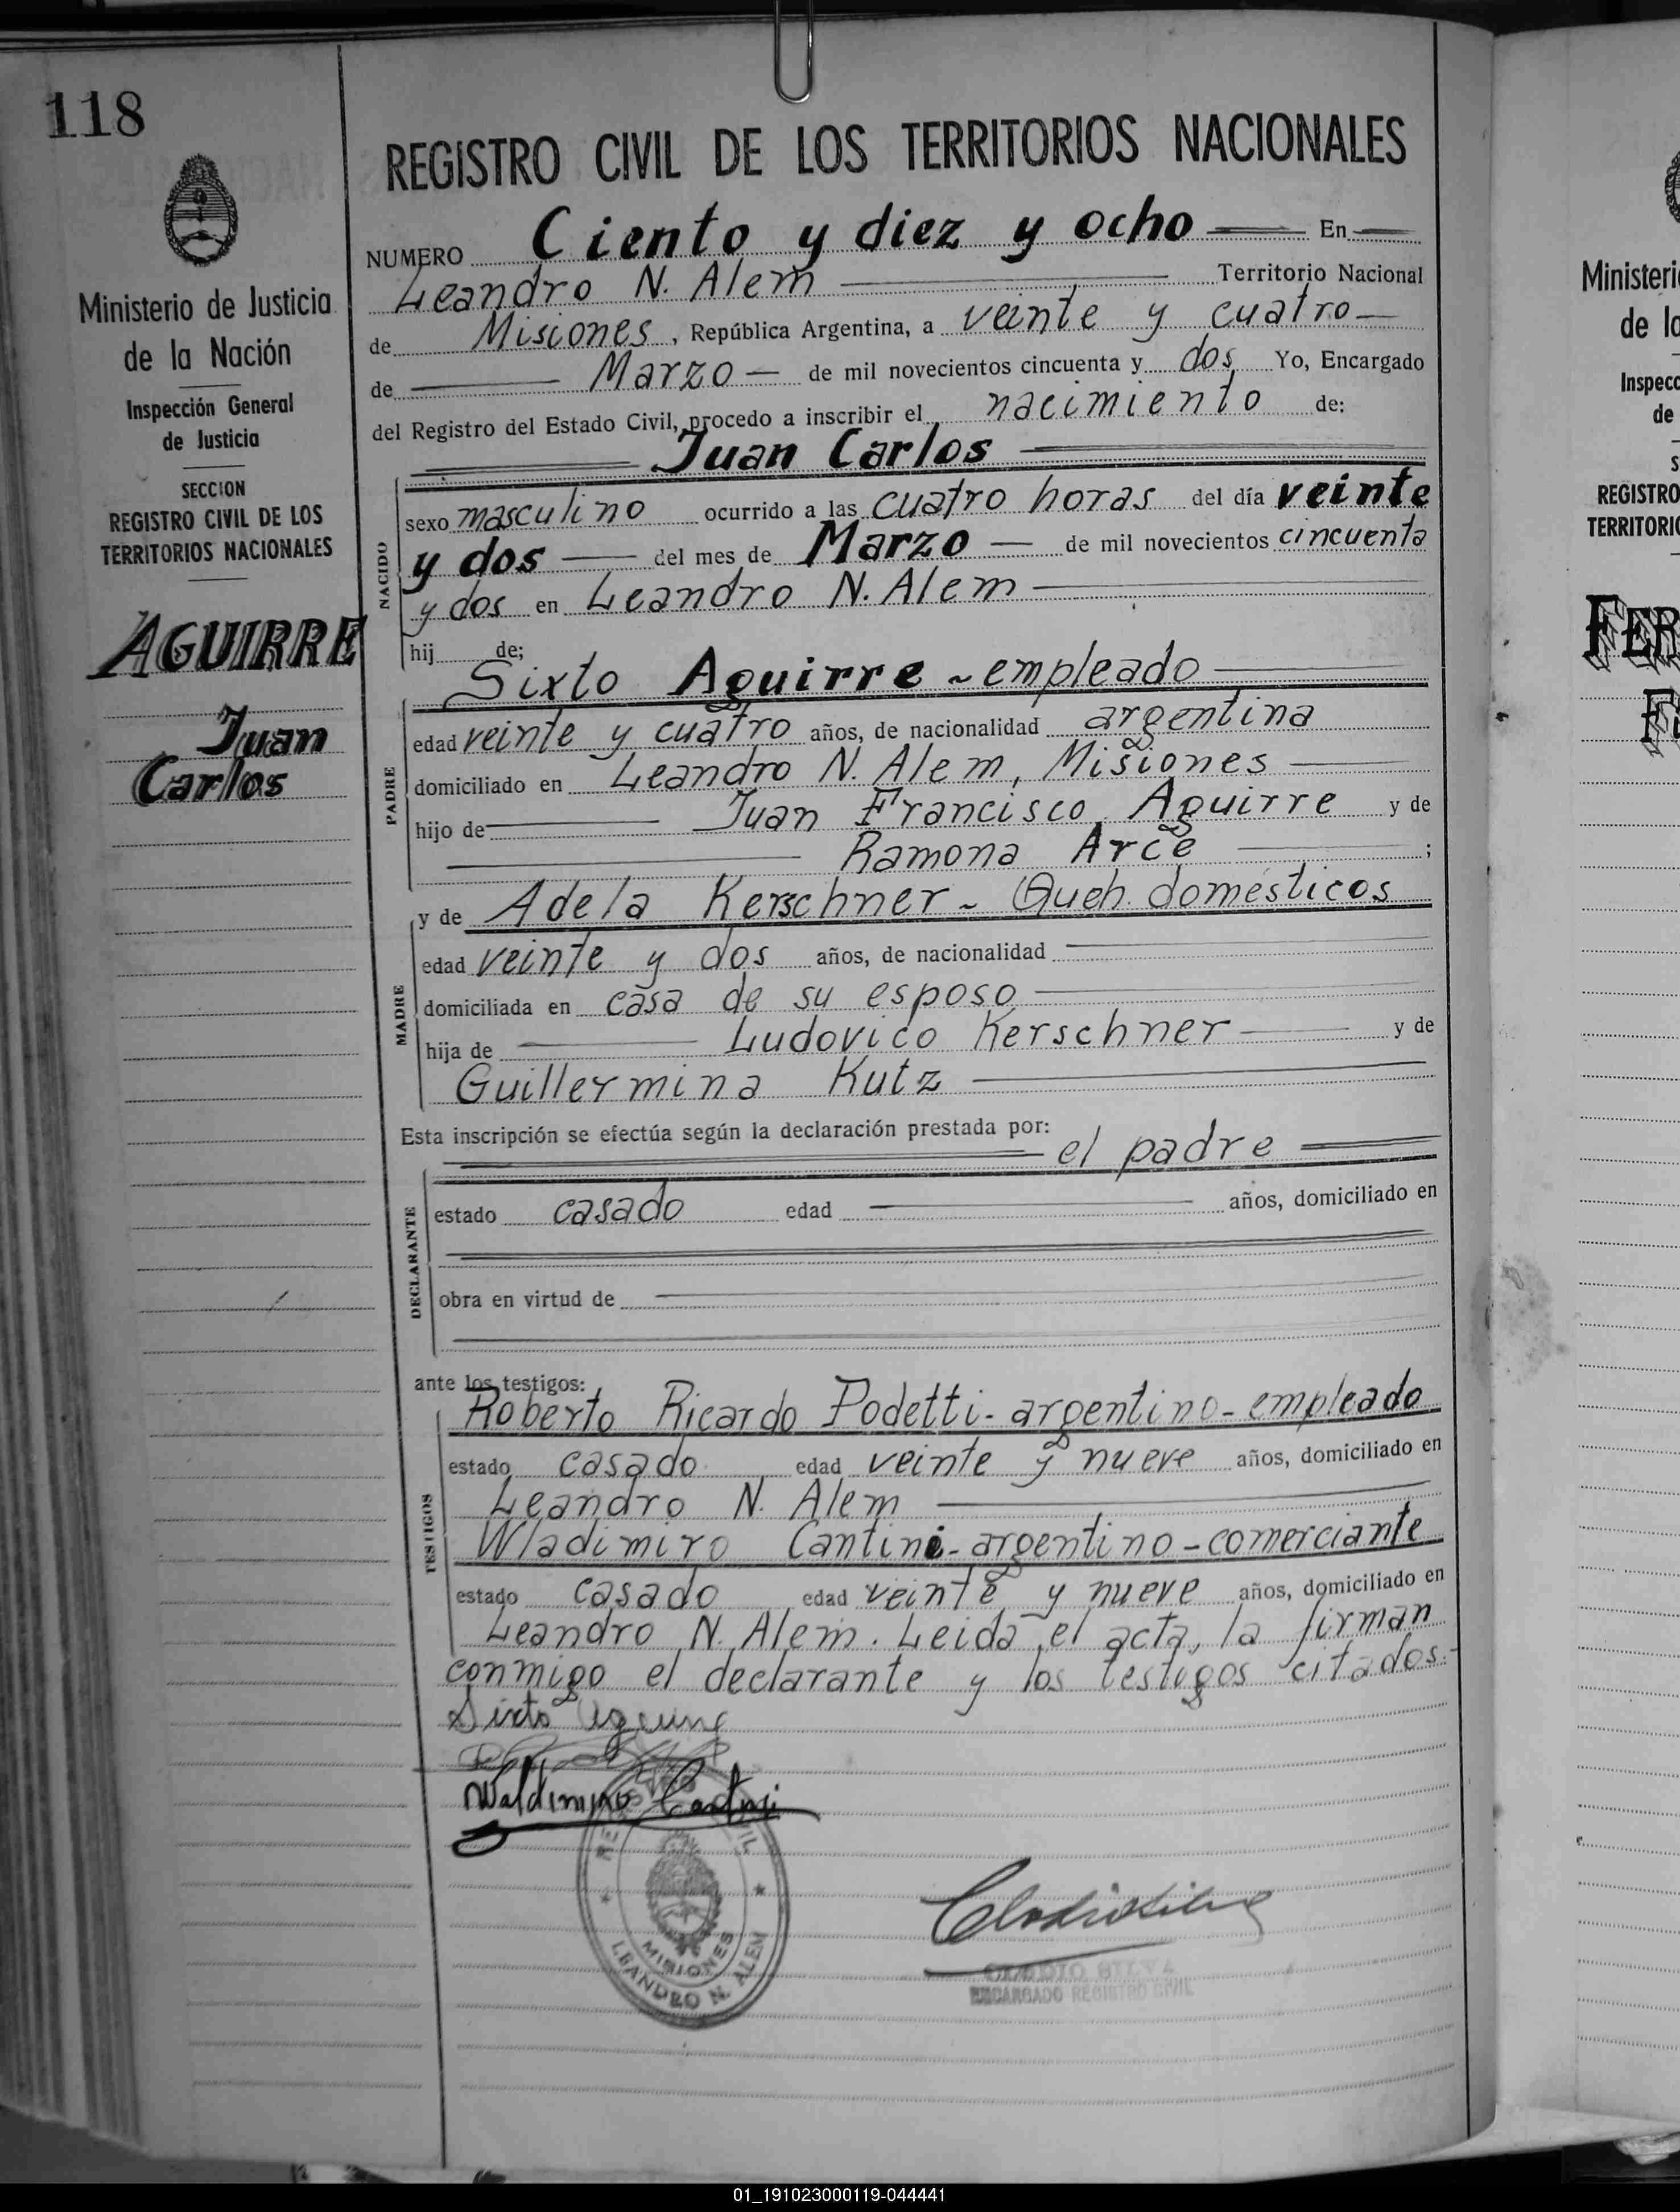 118
Ministerio de Justicia
de la Nación
Inspección General
de Justicia
SECCION
REGISTRO CIVIL DE LOS
TERRITORIOS NACIONALES
AGUIRRE
Juan
Carlos
REGISTRO CIVIL DE LOS TERRITORIOS NACIONALES
NUMERO Ciento y diez y ocho En
Leandro N. Alem Territorio Nacional
de Misiones, República Argentina, a veinte y cuatro
de Marzo de mil novecientos cincuenta y dos Yo, Encargado
del Registro del Estado Civil, procedo a inscribir el nacimiento de:
Juan Carlos
NACIDO
sexo masculino ocurrido a las cuatro horas del día veinte
y dos del mes de Marzo de mil novecientos cincuenta
y dos en Leandro N. Alem
hij de;
Sixto Aguirre - empleado
PADRE
edad veinte y cuatro años, de nacionalidad argentina
domiciliado en Leandro N. Alem, Misiones
hijo de Juan Francisco Aguirre y de
Ramona Arce ;
y de Adela Kerschner - Queh. domésticos
MADRE
edad veinte y dos años, de nacionalidad
domiciliada en casa de su esposo
hija de Ludovico Kerschner y de
Guillermina Kutz
Esta inscripción se efectúa según la declaración prestada por:
el padre
DECLARANTE
estado casado edad años, domiciliado en
obra en virtud de
ante los testigos:
Roberto Ricardo Podetti - argentino - empleado
TESTIGOS
estado casado edad veinte y nueve años, domiciliado en
Leandro N. Alem
Wladimiro Cantini - argentino - comerciante
estado casado edad veinte y nueve años, domiciliado en
Leandro N. Alem. Leida el acta, la firman
conmigo el declarante y los testigos citados.-
Sixto Aguirre
Waldimiro Cantini
MISIONES
LEANDRO N. ALEM
CLAUDIO SILVA
ENCARGADO REGISTRO CIVIL
Ministeri
de la
Inspecc
de
REGISTRO
TERRITORIO
FER
01_191023000119-044441